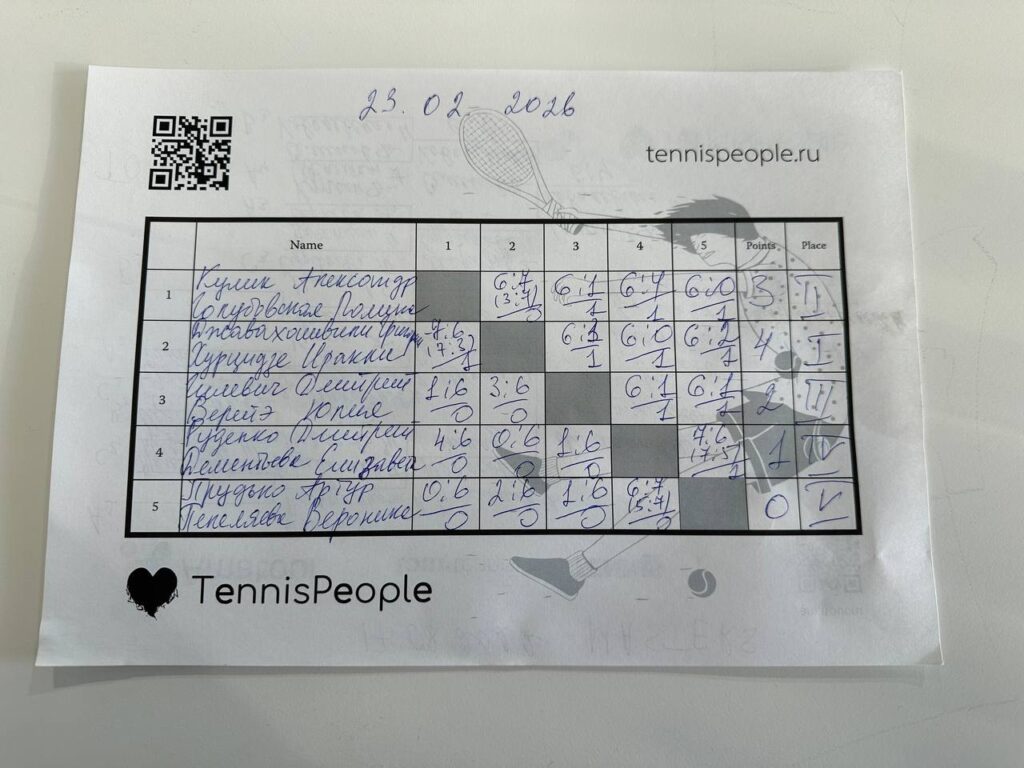 23.02 2026
tennispeople.ru
Name 1 2 3 4 5 Points Place
1 Кулик Александр 6:7 6:1 6:4 6:0 3 II
Голубовская Полина (3:7) 0 1 1 1
2 Джавахашвили 7:6 6:3 6:0 6:2 4 I
Хурцидзе Иракли (7:3) 1 1 1 1
3 Дмитрий 1:6 3:6 6:1 6:1 2 III
Юлия 0 0 1 1
4 Руденко Дмитрий 4:6 0:6 1:6 7:6 1 IV
Дементьева Елизавета 0 0 0 (7:5) 1
5 Прудько Артур 0:6 2:6 1:6 6:7 0 V
Пепеляева Вероника 0 0 0 (5:7) 0
TennisPeople